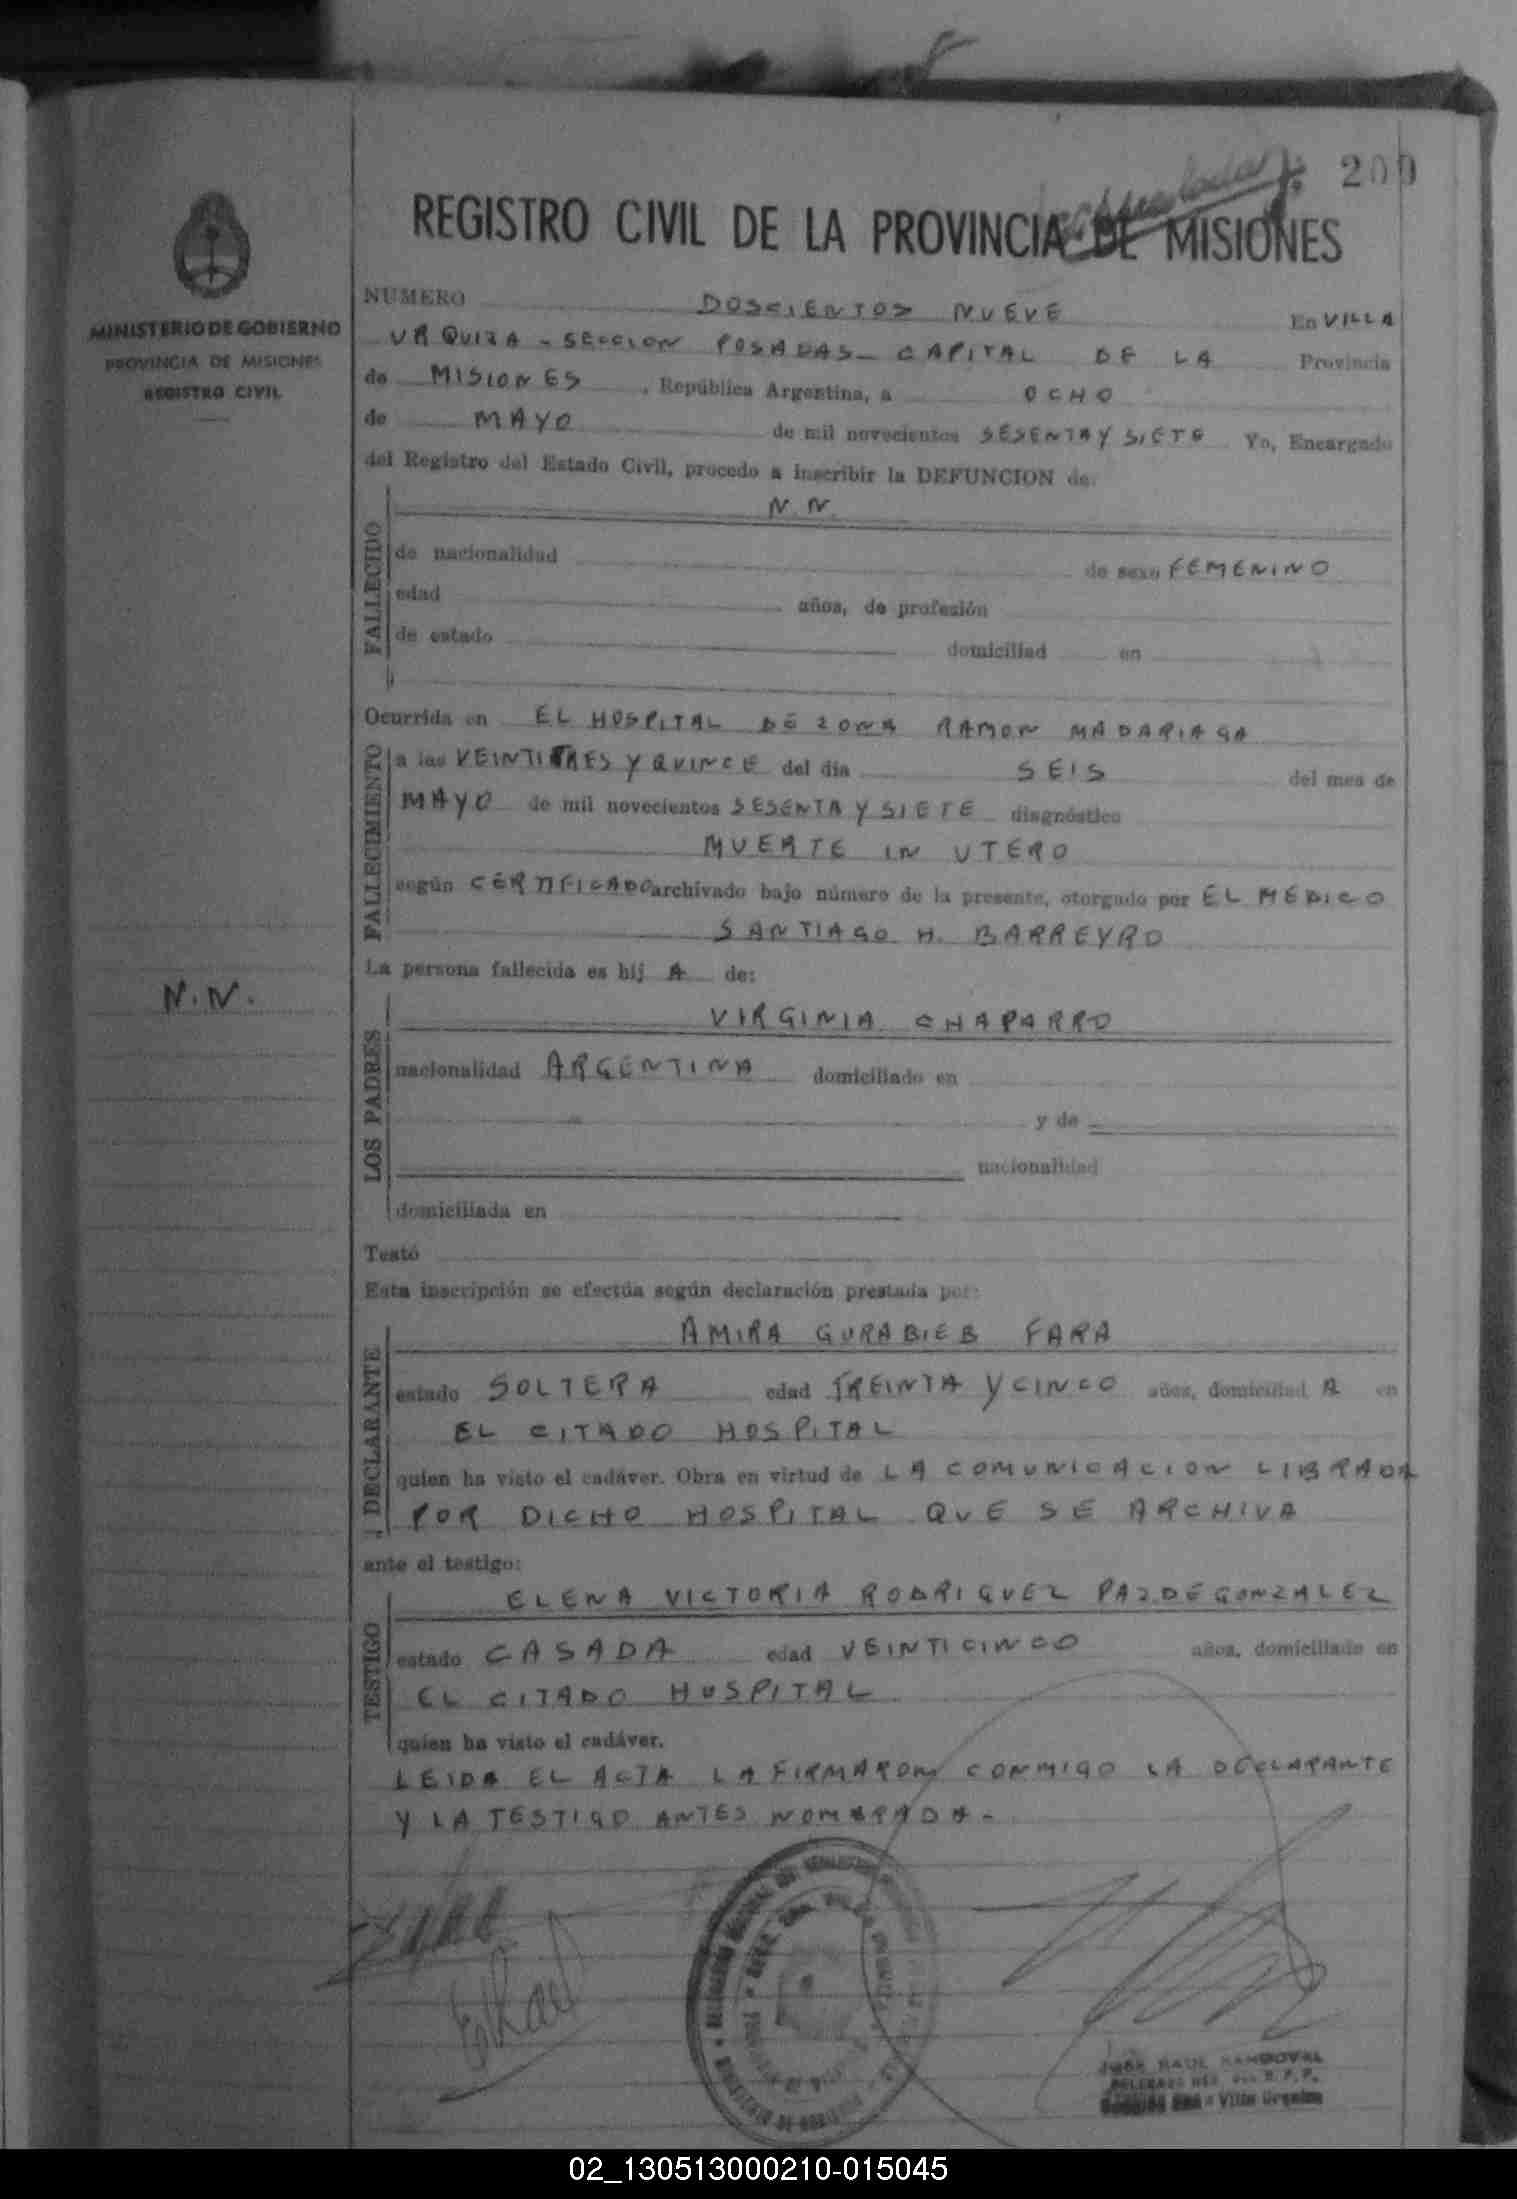 209
REGISTRO CIVIL DE LA PROVINCIA DE MISIONES
MINISTERIO DE GOBIERNO
PROVINCIA DE MISIONES
REGISTRO CIVIL
NUMERO DOSCIENTOS NUEVE En VILLA
URQUIZA - SECCION POSADAS - CAPITAL DE LA Provincia
de MISIONES, República Argentina, a OCHO
de MAYO de mil novecientos SESENTA Y SIETE Yo, Encargado
del Registro del Estado Civil, procedo a inscribir la DEFUNCION de:
FALLECIDO
N. N.
de nacionalidad de sexo FEMENINO
edad años, de profesión
de estado domiciliad en
Ocurrida en EL HOSPITAL DE ZONA RAMON MADARIAGA
FALLECIMIENTO
a las VEINTITRES Y QUINCE del día SEIS del mes de
MAYO de mil novecientos SESENTA Y SIETE diagnóstico
MUERTE IN UTERO
según CERTIFICADO archivado bajo número de la presente, otorgado por EL MEDICO
SANTIAGO H. BARREYRO
La persona fallecida es hij A de:
N.N.
LOS PADRES
VIRGINIA CHAPARRO
nacionalidad ARGENTINA domiciliado en
y de
nacionalidad
domiciliada en
Testó
Esta inscripción se efectúa según declaración prestada por:
DECLARANTE
AMIRA GURABIEB FARA
estado SOLTERA edad TREINTA Y CINCO años, domiciliad A en
EL CITADO HOSPITAL
quien ha visto el cadáver. Obra en virtud de LA COMUNICACION LIBRADA
POR DICHO HOSPITAL QUE SE ARCHIVA
ante el testigo:
TESTIGO
ELENA VICTORIA RODRIGUEZ PAZ DE GONZALEZ
estado CASADA edad VEINTICINCO años, domiciliado en
EL CITADO HOSPITAL
quien ha visto el cadáver.
LEIDA EL ACTA LA FIRMARON CONMIGO LA DECLARANTE
Y LA TESTIGO ANTES NOMBRADA -
RAUL SANDOVAL
Villa Urquiza
02_130513000210-015045